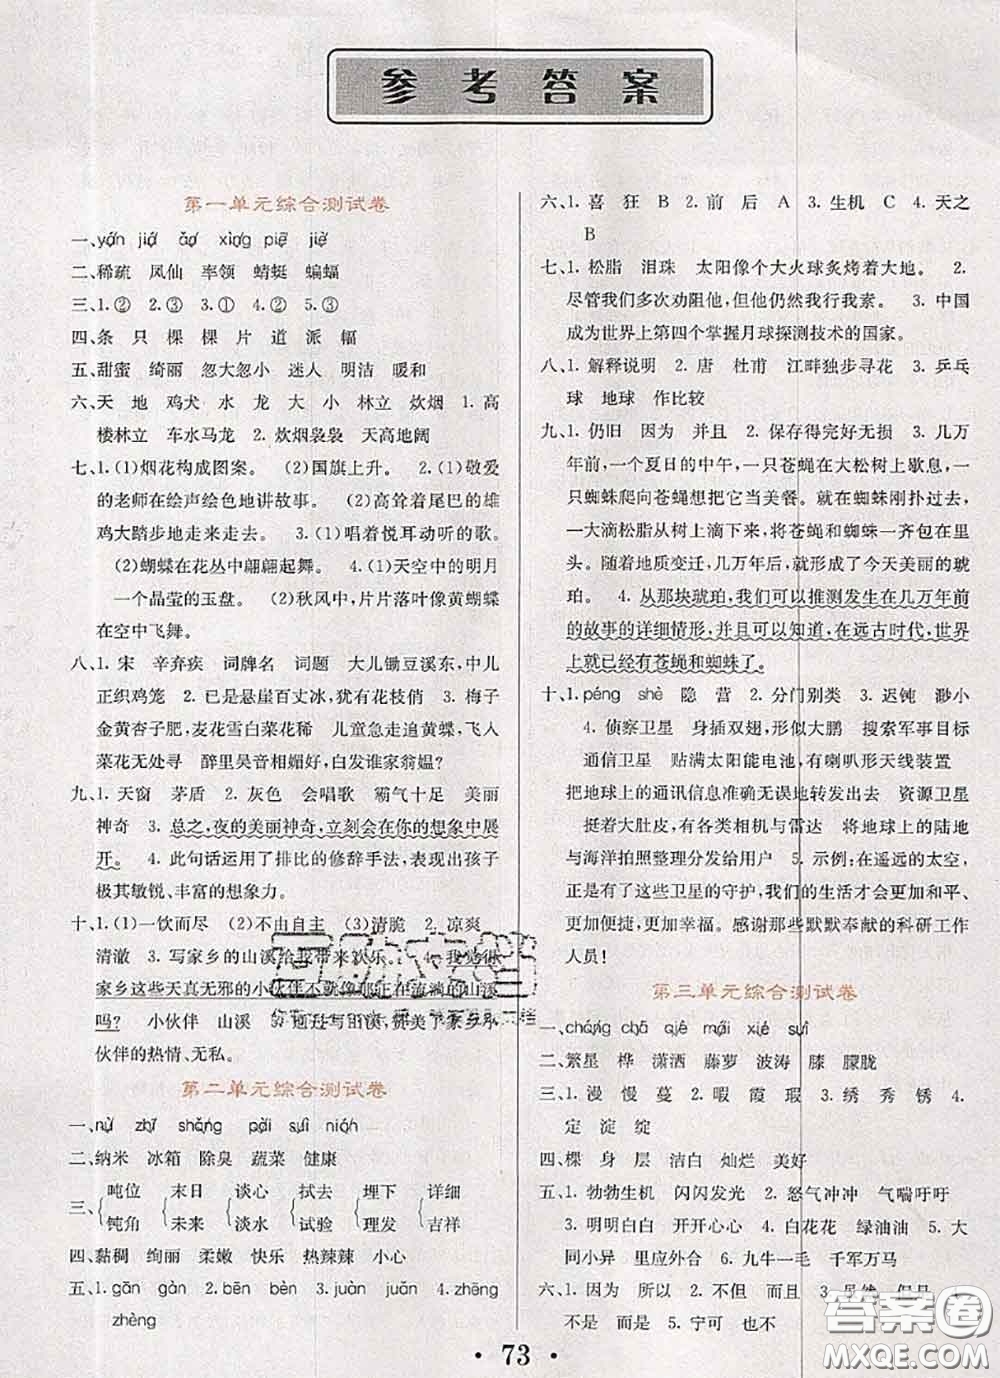 参考答案
第一单元综合测试卷
二、稀疏 凤仙 率领 蜻蜓 蝙蝠
三、1.② 2.③ 3.① 4.② 5.③
四、条 只 棵 棵 片 道 派 幅
五、甜蜜 绮丽 忽大忽小 迷人 明洁 暖和
六、天 地 鸡犬 水 龙 大 小 林立 炊烟 1.高
楼林立 车水马龙 2.炊烟袅袅 天高地阔
七、1.(1)烟花构成图案。 (2)国旗上升。 2.(1)敬爱
的老师在绘声绘色地讲故事。 (2)高耸着尾巴的雄
鸡大踏步地走来走去。 3.(1)唱着悦耳动听的歌。
(2)蝴蝶在花丛中翩翩起舞。 4.(1)天空中的明月
一个晶莹的玉盘。 (2)秋风中,片片落叶像黄蝴蝶
在空中飞舞。
八、1.宋 辛弃疾 词牌名 词题 大儿锄豆溪东,中儿
正织鸡笼 2.已是悬崖百丈冰,犹有花枝俏 3.梅子
金黄杏子肥,麦花雪白菜花稀 儿童急走追黄蝶,飞入
菜花无处寻 醉里吴音相媚好,白发谁家翁媪?
九、1.天窗 茅盾 2.灰色 会唱歌 霸气十足 美丽
神奇 3.总之,夜的美丽神奇,立刻会在你的想象中展
开。 4.此句话运用了排比的修辞手法,表现出孩子
极其敏锐、丰富的想象力。
十、1.(1)一饮而尽 (2)不由自主 (3)清脆 2.凉爽
清澈 3.写家乡的山溪给我带来欢乐。 4.我觉得
家乡这些天真无邪的小伙伴不就像那正在流淌的山溪
吗? 小伙伴 山溪 5.通过写山溪,赞美了家乡小
伙伴的热情、无私。
第二单元综合测试卷
二、纳米 冰箱 除臭 蔬菜 健康
三、吨位 末日 谈心 拭去 埋下 详细
钝角 未来 淡水 试验 理发 吉祥
四、黏稠 绚丽 柔嫩 快乐 热辣辣 小心
五、1.gān gàn 2.bēn bèn 3.juàn juān 4.zhēng
zhèng
六、1.喜 狂 B 2.前 后 A 3.生机 C 4.天之
B
七、1.松脂 泪珠 太阳像个大火球炙烤着大地。 2.
尽管我们多次劝阻他,但他仍然我行我素。 3.中国
成为世界上第四个掌握月球探测技术的国家。
八、1.解释说明 2.唐 杜甫 江畔独步寻花 3.乒乓
球 地球 作比较
九、1.仍旧 因为 并且 2.保存得完好无损 3.几万
年前,一个夏日的中午,一只苍蝇在大松树上歇息,一
只蜘蛛爬向苍蝇想把它当美餐。就在蜘蛛刚扑过去,一
大滴松脂从树上滴下来,将苍蝇和蜘蛛一齐包在里
头。随着地质变迁,几万年后,就形成了今天美丽的琥
珀。 4.从那块琥珀,我们可以推测发生在几万年前
的故事的详细情形,并且可以知道,在远古时代,世界
上就已经有苍蝇和蜘蛛了。
十、1.péng shè 隐 营 2.分门别类 3.迟钝 渺小
4.侦察卫星 身插双翅,形似大鹏 搜索军事目标
通信卫星 贴满太阳能电池,有喇叭形天线装置
把地球上的通讯信息准确无误地转发出去 资源卫星
挺着大肚皮,有各类相机与雷达 将地球上的陆地
与海洋拍照整理分发给用户 5.示例:在遥远的太空,
正是有了这些卫星的守护,我们的生活才会更加和平、
更加便捷,更加幸福。感谢那些默默奉献的科研工作
人员!
第三单元综合测试卷
二、繁星 桦 潇洒 藤萝 波涛 膝 朦胧
三、1.漫 慢 蔓 2.暇 霞 瑕 3.绣 秀 锈 4.
定 淀 绽
四、棵 身 层 洁白 灿烂 美好
五、1.勃勃生机 闪闪发光 2.怒气冲冲 气喘吁吁
3.明明白白 开开心心 4.白花花 绿油油 5.大
同小异 里应外合 6.九牛一毛 千军万马
六、1.因为 所以 2.不但 而且 3.虽然 但是 4.
不是 而是 5.宁可 也不
• 73 •
答案圈
MXQE.COM